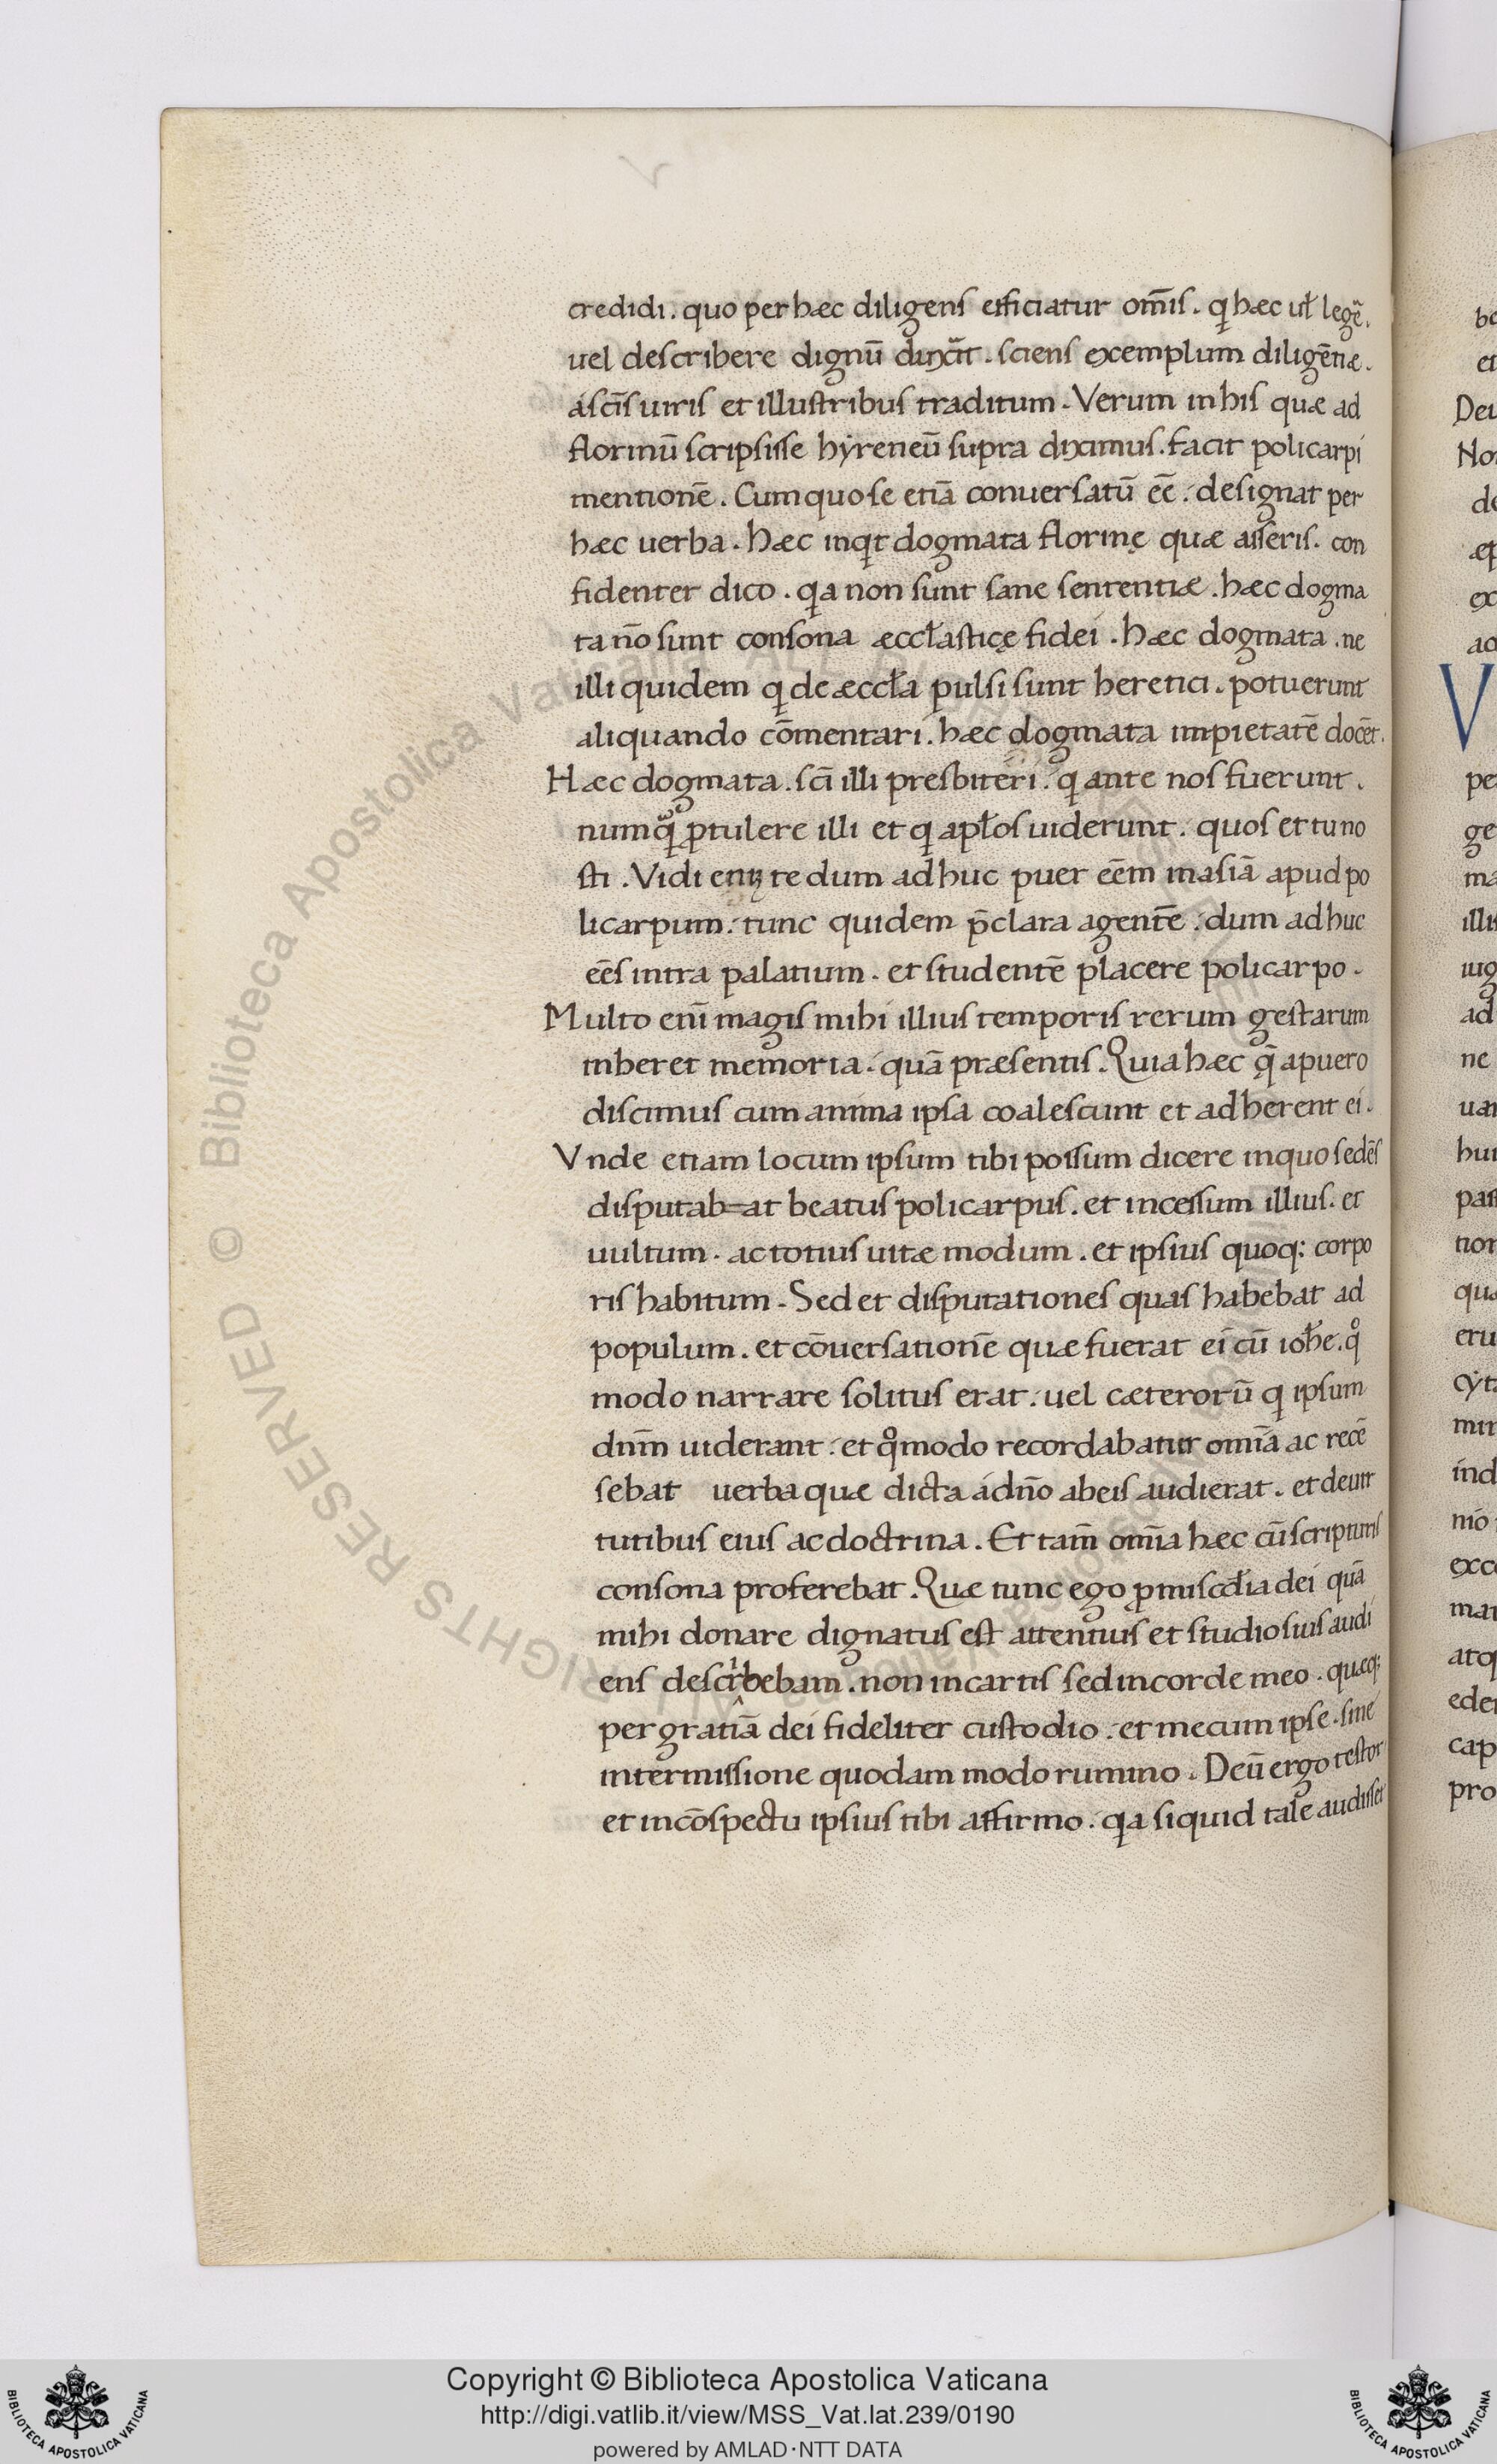 credidi. quo per hæc diligens efficiatur om̄is. q hæc ut legē.
uel describere dignū dixāit. sciens exemplum diligētiæ.
a sc̄is uiris et illustribus traditum. Verum in his quæ ad
florinū scripsisse hẏreneū supra diximus. facit policarpi
mentionē. Cum quo se etiā conuersatū ēē. designat per
hæc uerba. Hæc inqt dogmata florinę quæ asseris. con
fidenter dico. qa non sunt sane sententiæ. hæc dogma
ta nō sunt consona æccłasticę fidei. Hæc dogmata. ne
illi quidem q de æccła pulsi sunt heretici. potuerunt
aliquando cōmentari. hæc dogmata impietatē docēt.
Hæc dogmata. sc̄i illi presbiteri. q ante nos fuerunt.
numqͣ ꝓtulere illi et q apłos uiderunt. quos et tu no
sti. Vidi enĩ te dum adhuc puer eēm in asiā apud po
licarpum. tunc quidem p̄clara agentē. dum adhuc
eēs intra palatium. et studentē placere policarpo.
Multo eni̅ magis mihi illius temporis rerum gestarum
inheret memoria. quā præsentis. Quia hæc q̄ a puero
discimus cum anima ipsa coalescunt et adherent ei.
Vnde etiam locum ipsum tibi possum dicere in quo sedēs
disputab=at beatus policarpus. et incessum illius. et
uultum. ac totius uitæ modum. et ipsius quoq: corpo
ris habitum. Sed et disputationes quas habebat ad
populum. et cōuersationē quæ fuerat ei cū ioħe. qͦ
modo narrare solitus erat. uel cæterorū q ipsum
dn̄m uiderant. et qͦmodo recordabatur omīa ac recē
sebat uerba quæ dicta a dn̄o ab eis audierat. et de uir
tutibus eius ac doctrina. Et tam̄ omīa hæc cū scripturis
consona proferebat. Quæ tunc ego ꝓ miscd̄ia dei quā
mihi donare dignatus est attentius et studiosius audi
ens describebam. non in cartis sed in corde meo. quæq:
per gratiā dei fideliter custodio. et mecum ipse. sine
intermissione quodam modo rumino. Deū ergo testor
et in cōspectu ipsius tibi affirmo. qa si quid tale audisset
V
Copyright © Biblioteca Apostolica Vaticana
http://digi.vatlib.it/view/MSS_Vat.lat.239/0190
powered by AMLAD·NTT DATA
BIBLIOTECA APOSTOLICA VATICANA
BIBLIOTECA APOSTOLICA VATICANA